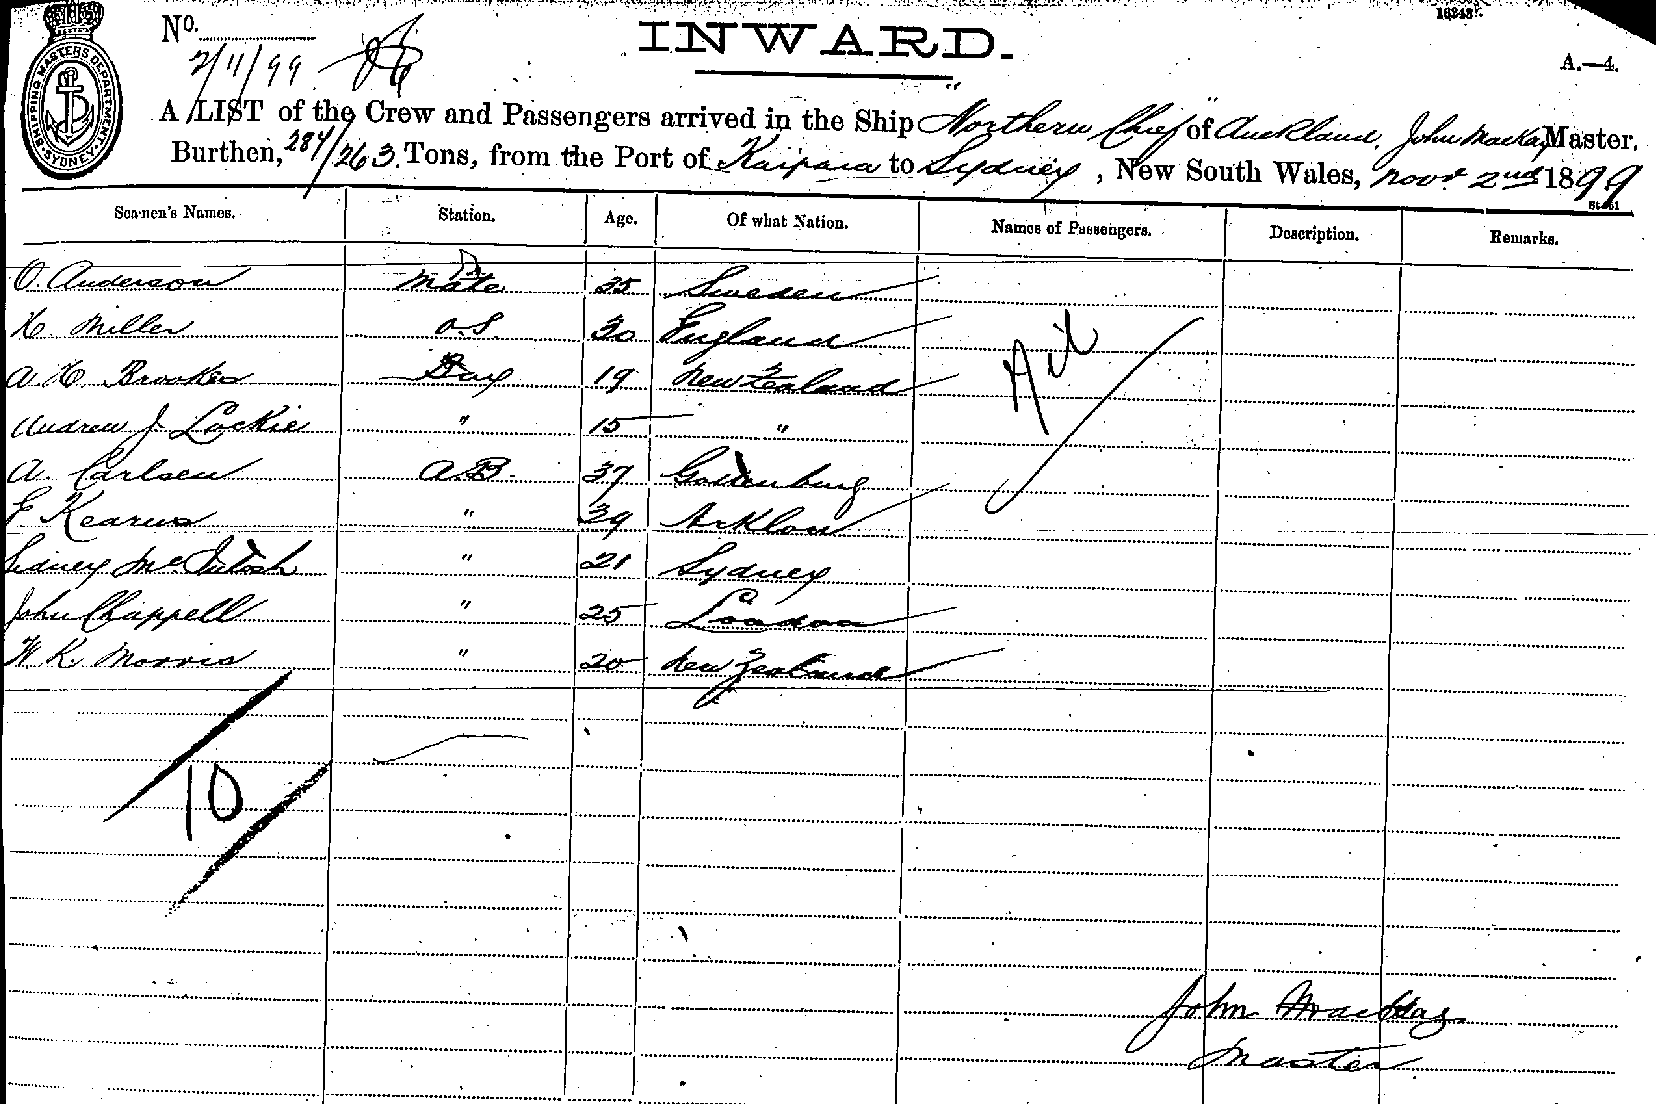 16243
No.
2/11/99
INWARD.
A.—4.
SHIPPING MASTERS DEPARTMENT SYDNEY
A LIST of the Crew and Passengers arrived in the Ship "Northern Chief" of Auckland, John Mackay Master,
Burthen, 284/263 Tons, from the Port of Kaipara to Sydney, New South Wales, Novr 2nd 1899
Seamen's Names. Station. Age. Of what Nation. Names of Passengers. Description. Remarks.
O. Anderson Mate 35 Sweden
H. Miller O.S. 30 England
A. H. Brookes Boy 19 New Zealand
Andrew J. Lockie " 15 "
A. Carlsen A.B. 37
E Kearns " 39 Arklow
Sidney McIntosh " 21 Sydney
John Chappell " 25 London
W. K. Morris " 20 New Zealand
Nil
10
John Mackay
Master